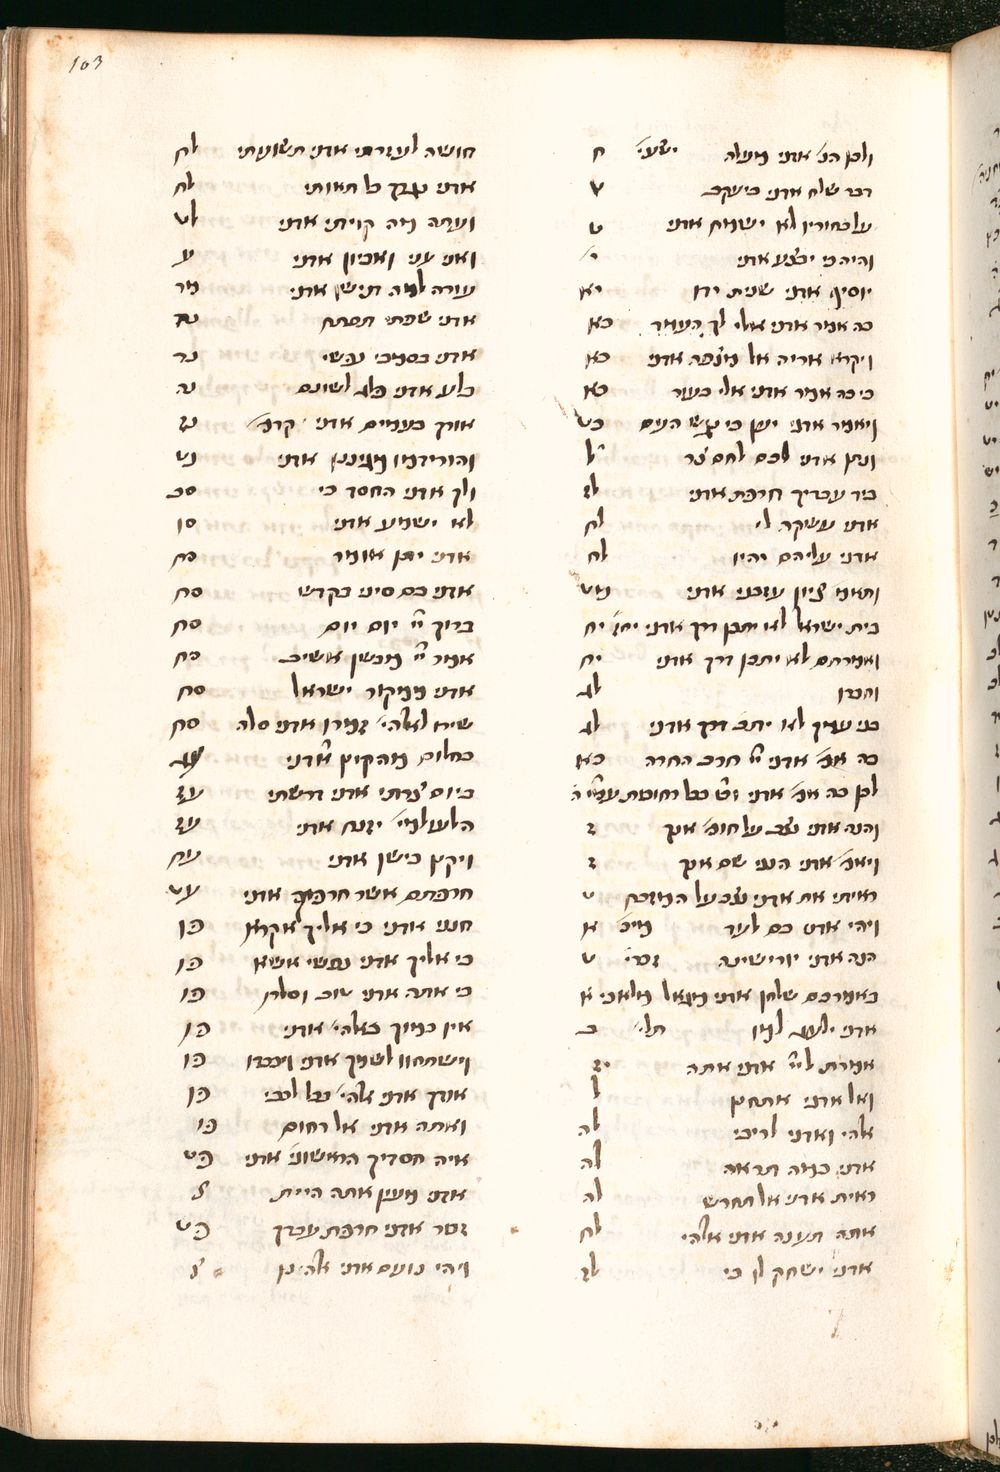 103
ולכן הנה אדני מעלה ישעי׳ ח
דבר שלח אדני ביעקב ט
על בחוריו לא ישמח אדני ט
והיה כי יבצע אדני י
יוסיף אדני שנית ידו יא
כה אמר אדני אלי לך העמד כא
ויקרא אריה אל מצפה אדני כא
כי כה אמר אדני אלי בעוד כא
ויאמר אדני יען כי נגש העם כט
ונתן אדני לכם לחם צר ל
ביד עבדיך חרפת אדני לז
אדני עשקה לי לח
אדני עליהם יחיו לח
ותאמר ציון עזבני אדני מט
בית ישראל לא יתכן דרך אדני יחז׳ יח
ואמרתם לא יתכן דרך אדני יח
לג
בני עמך לא יתכן דרך אדני לג
כה אמ׳ אדני יי׳ חרב כא
לכן כה אמ׳ אדני בכל רחובות עמ׳ ה
והנה אדני נצב על חומ׳ אנך ז
ויאמ׳ אדני הנני שם אנך ז
ראיתי את אדני נצב על המזבח ט
ויהי אדני בכם לעד מיכ׳ א
הנה אדני יורישנה זכרי׳ ט
באמרכם שלחן אדני מגאל מלאכי א
אדני ילעג למו תלי׳ ב
אמרת ליי׳ אדני אתה יו
ואל אדני אתחנן ל
אלהי ואדני לריבי לה
אדני כמה תראה לה
ראית אדני אל תחרש לה
אתה תענה אדני אלהי לח
אדני ישחק לו כי לז
חושה לעזרתי אדני תשועתי לח
אדני נגדך כל תאותי לח
ועתה מה קויתי אדני לט
ואני עני ואביון אדני ע
עורה למה תישן אדני מד
אדני שפתי תפתח נא
אדני בסמכי נפשי נד
בלע אדני פלג לשונם נה
אודך בעמים אדני נז
והורידמו מגיננו אדני נט
ולך אדני החסד כי סב
לא ישמע אדני סו
אדני יתן אומר סח
אדני בם סיני בקדש סח
ברוך יי׳ יום יום סח
אמר יי׳ מבשן אשיב סח
אדני ממקור ישראל סח
שירו לאלהי׳ זמרו אדני סלה סח
כחלום מהקיץ אדני עג
ביום צרתי אדני דרשתי עז
הלעולמי׳ יזנח אדני עז
ויקץ כישן אדני עח
חרפתם אשר חרפוך אדני עט
חנני אדני כי אליך אקרא פו
כי אליך אדני נפשי אשא פו
כי אתה אדני טוב וסלח פו
אין כמוך באלהי׳ אדני פו
וישתחוו לשמך אדני ויכבדו פו
אודך אדני אלהי׳ בכל לבבי פו
ואתה אדני אל רחום פו
איה חסדיך הראשוני׳ אדני פט
אדני מעון אתה היית צ
זכר אדני חרפת עבדך פט
ויהי נועם אדני אלהינו צ